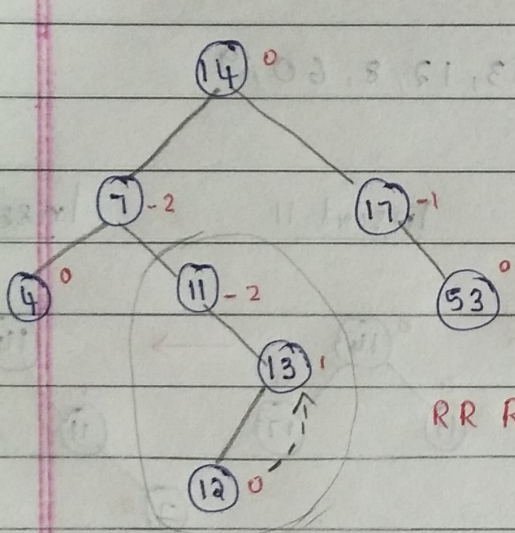 14 0
7 -2 17 -1
4 0 11 -2 53 0
13 1
RR
12 0